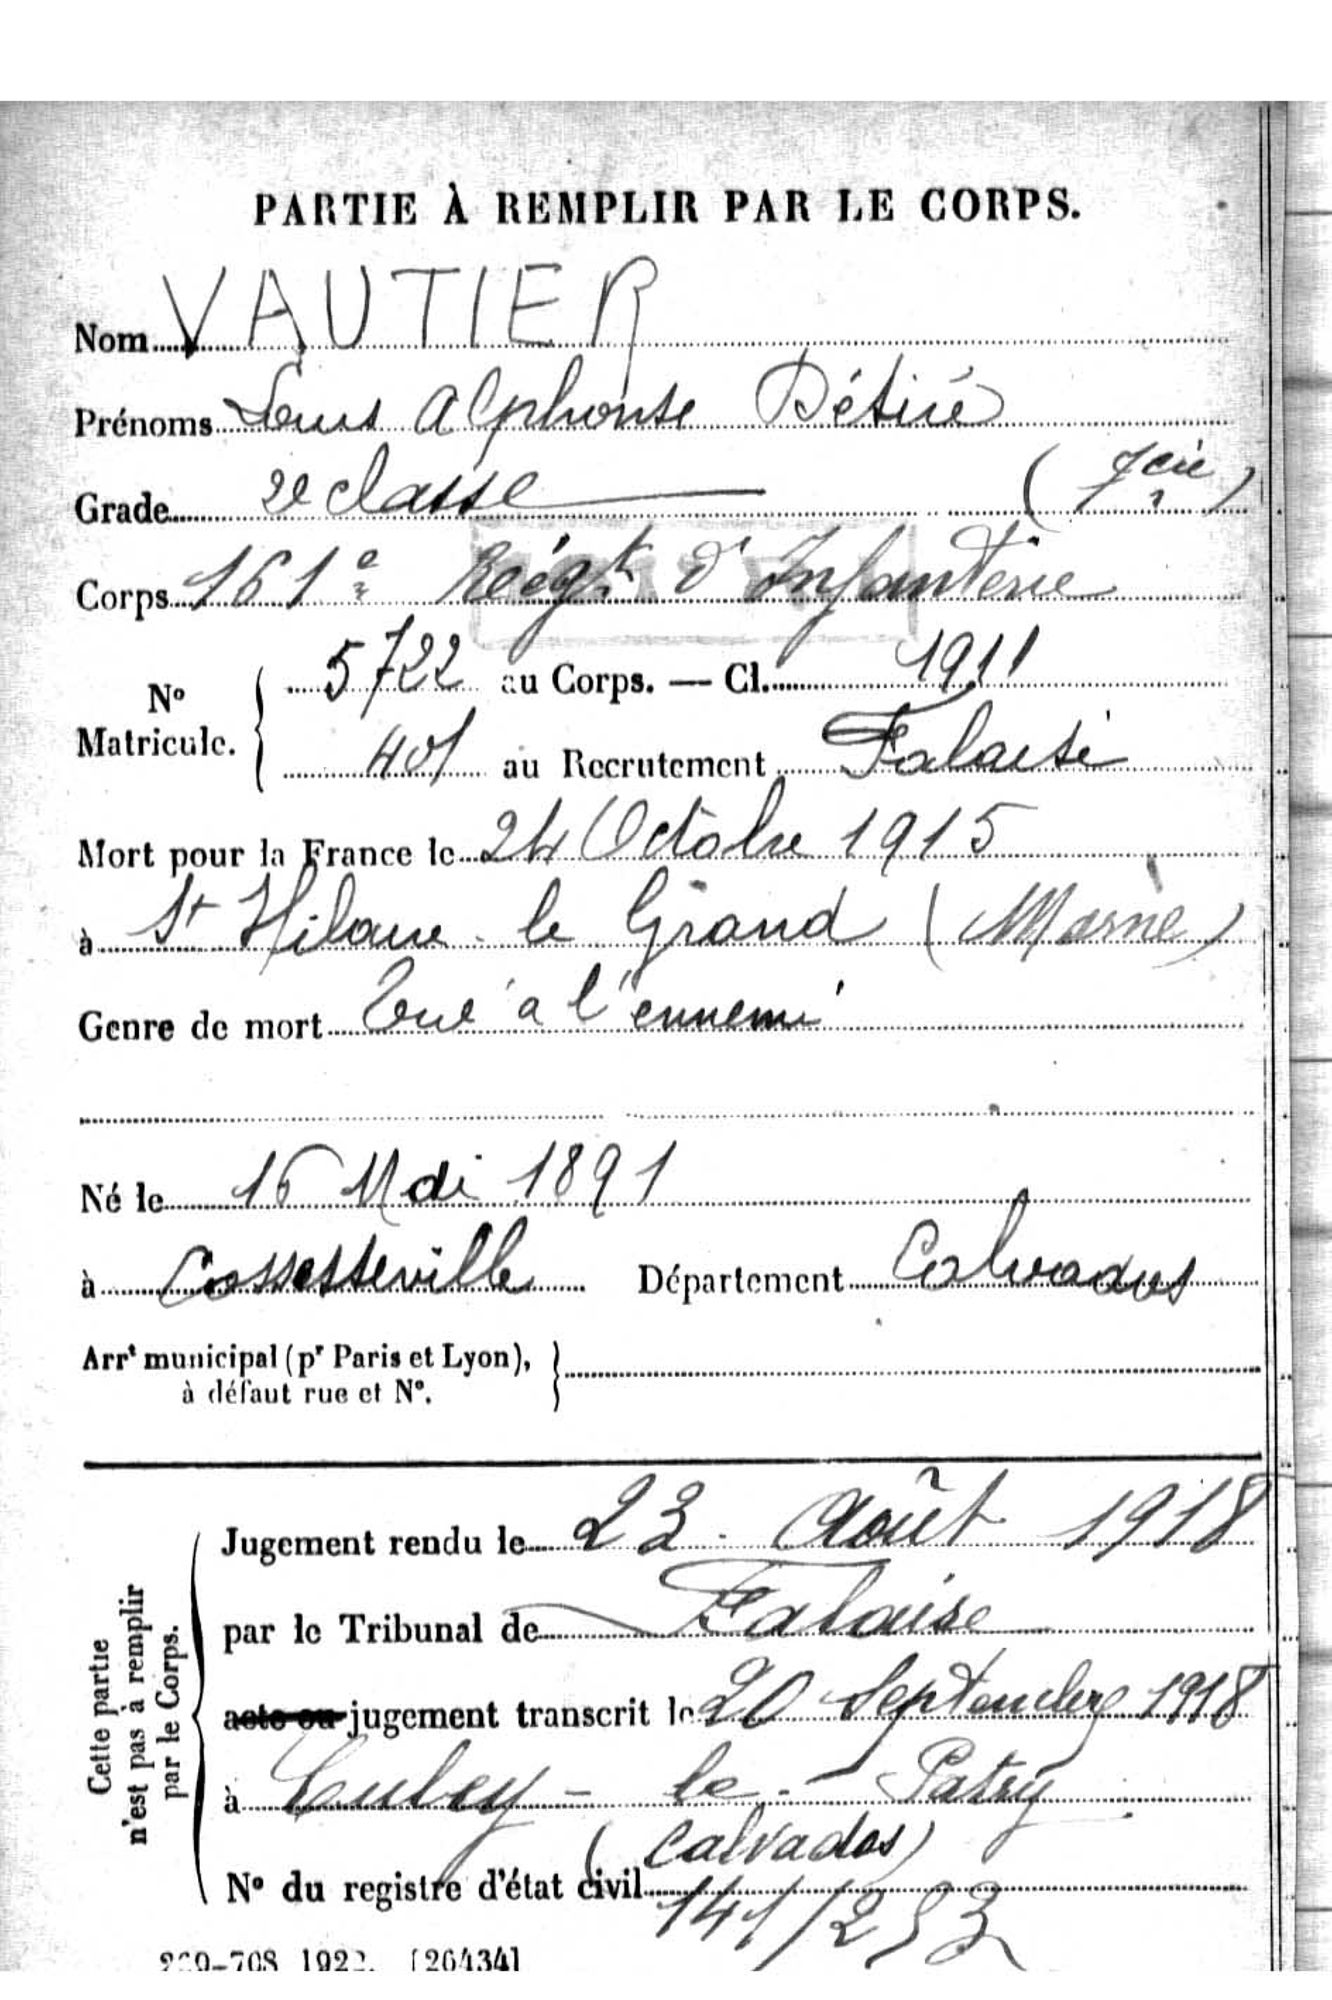 PARTIE À REMPLIR PAR LE CORPS.
Nom VAUTIER
Prénoms Louis Alphonse Désiré
Grade 2e classe (7 cie)
Corps 161e Régt d'Infanterie
No Matricule. { 5722 au Corps. — Cl. 1911
401 au Recrutement Falaise
Mort pour la France le 24 Octobre 1915
à St Hilaire le Grand (Marne)
Genre de mort Tué à l'ennemi
Né le 16 Mai 1891
à Cossesseville Département Calvados
Arrt municipal (pr Paris et Lyon), }
à défaut rue et No.
Cette partie
n'est pas à remplir
par le Corps.
Jugement rendu le 23 Août 1918
par le Tribunal de Falaise
acte ou jugement transcrit le 20 Septembre 1918
à Culey-le-Patry
(Calvados)
No du registre d'état civil
141/253
[26434]